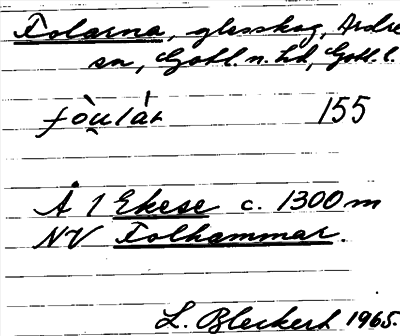 Folarna, glesskog, Ardre
sn, Gotl. n. hd, Gotl. l.
fòu̯làn 155
Å 1 Ekese c. 1300 m
NV Folhammar.
L. Bleckert 1965.